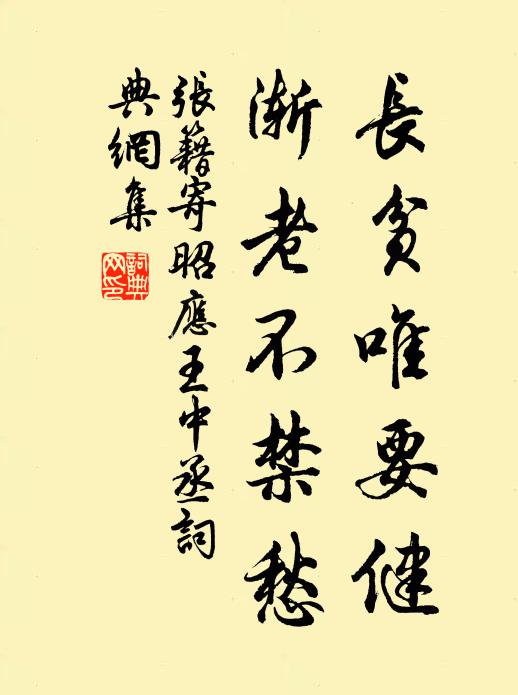 長貧唯要健
漸老不禁愁
張籍寄昭應王中丞詞
典網集
詞典
网印